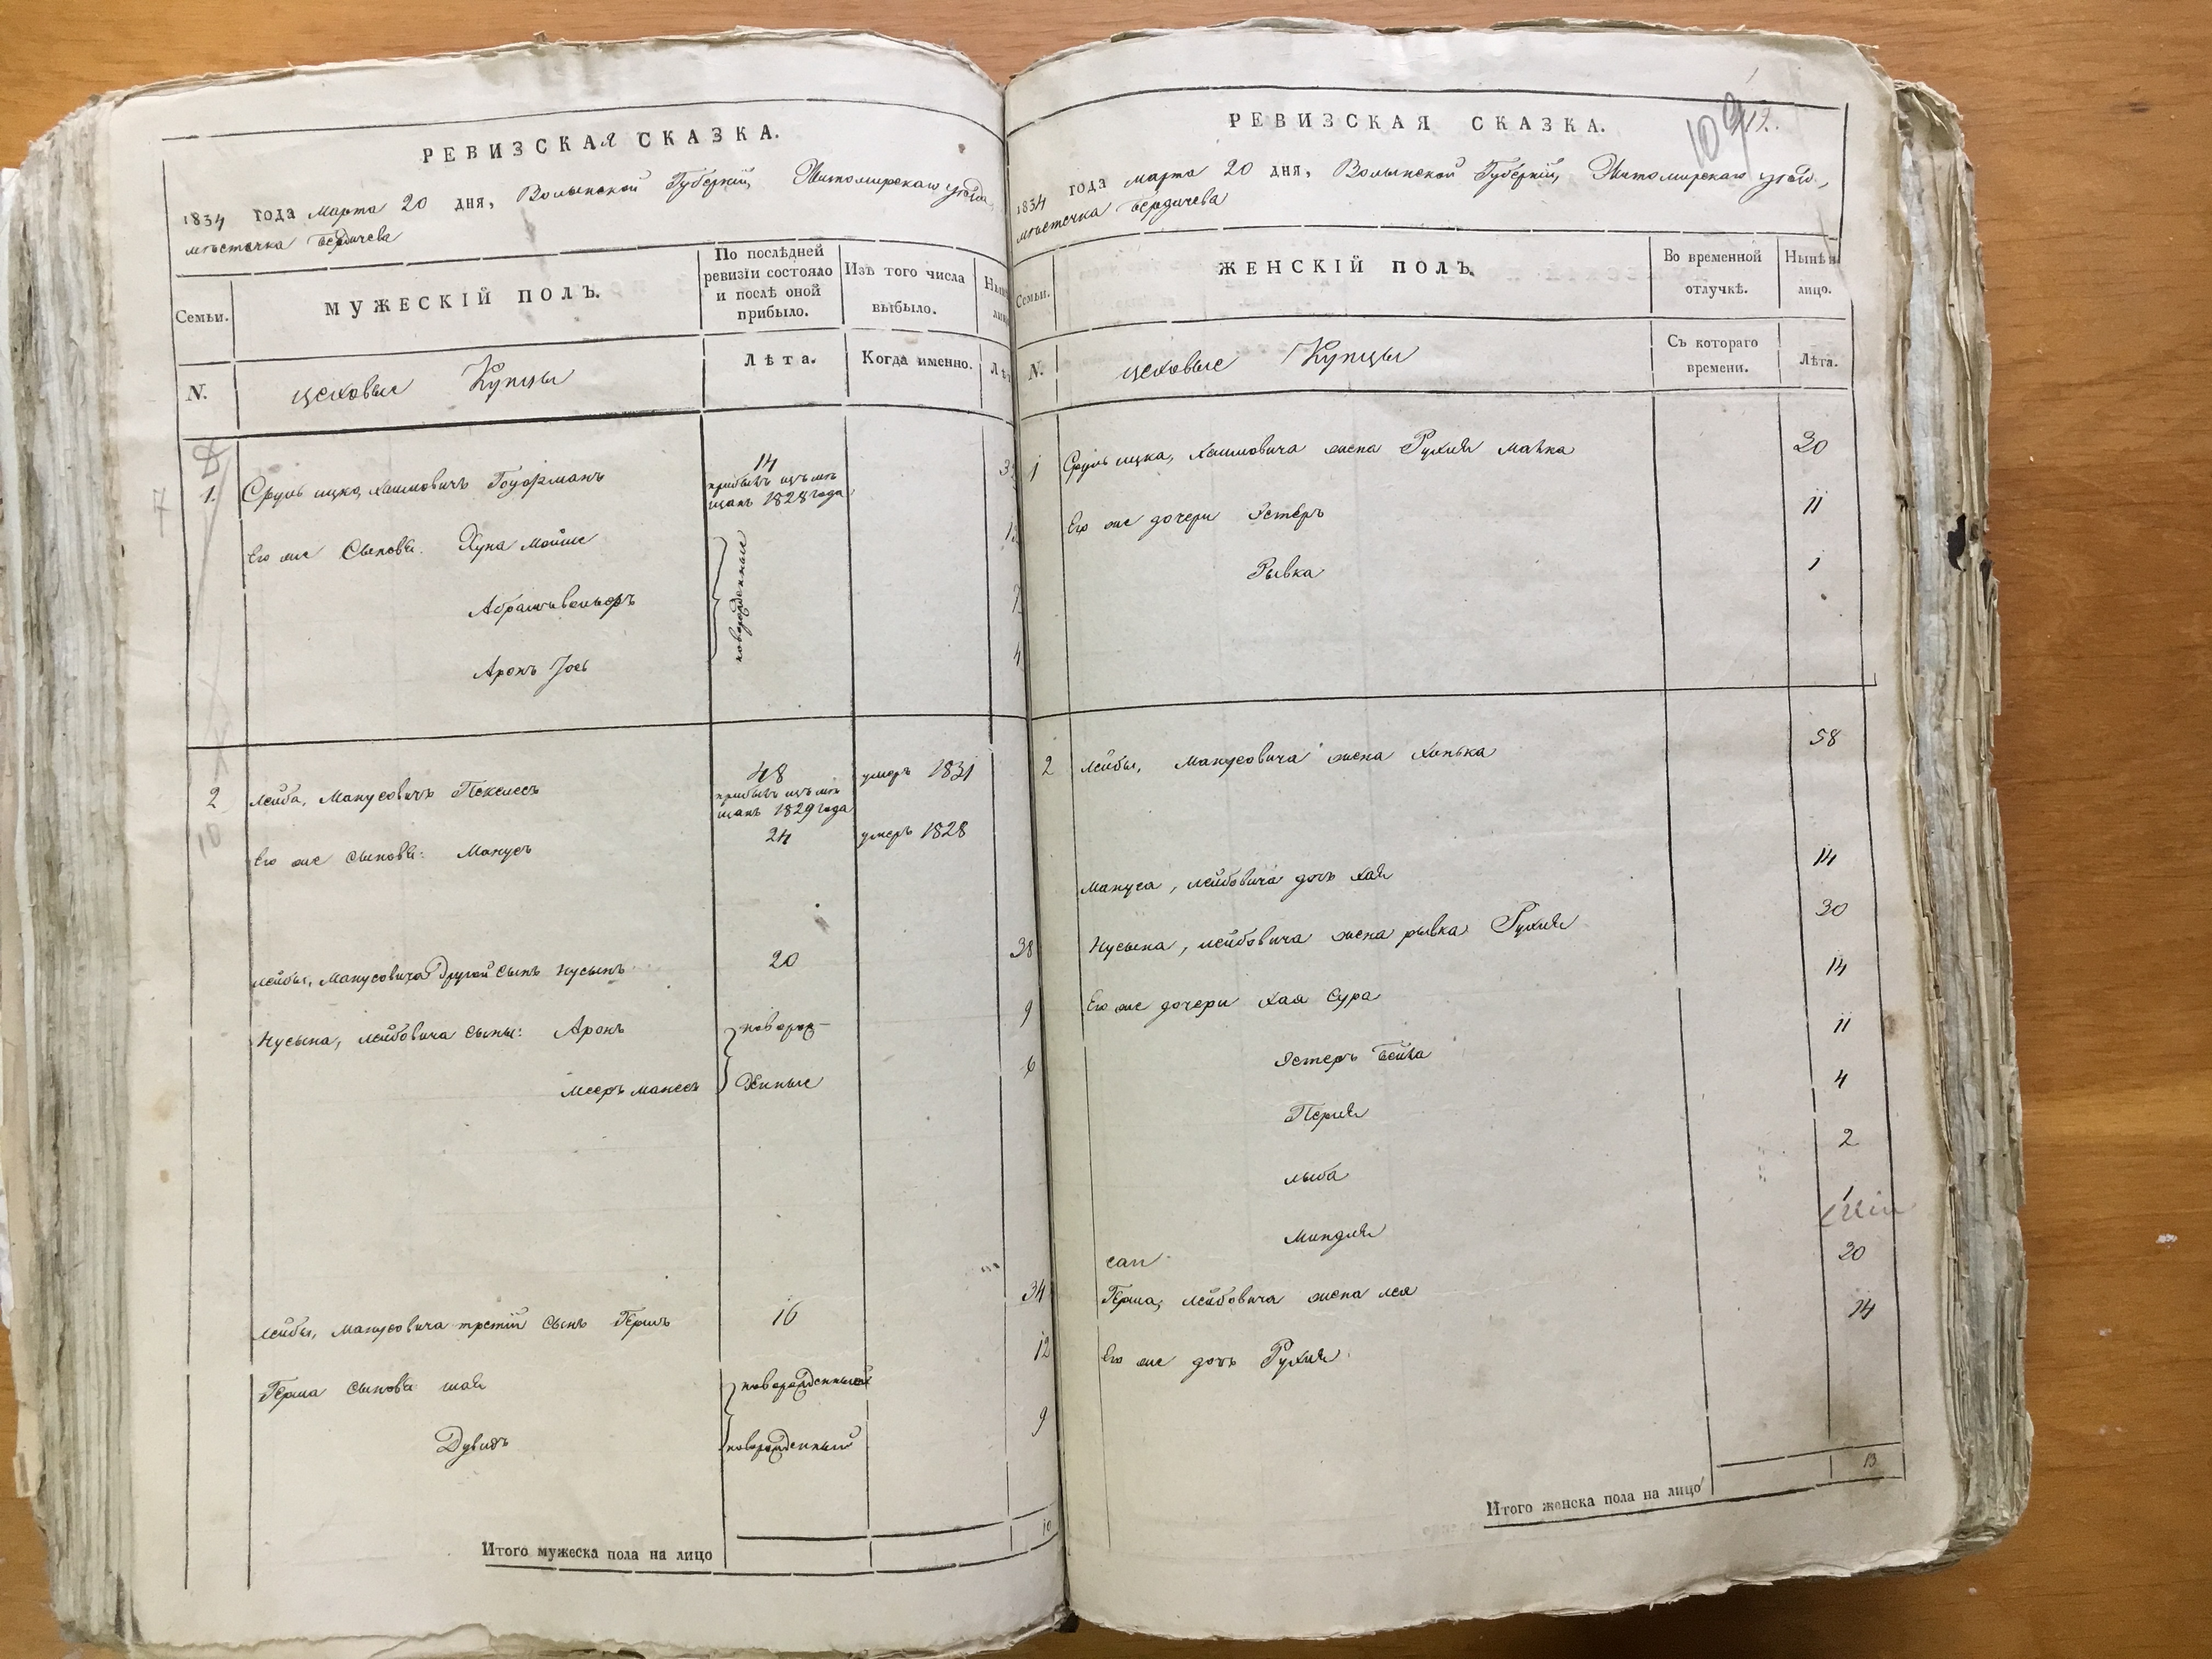 РЕВИЗСКАЯ СКАЗКА.
1834 года марта 20 дня, Волынской Губерніи, Житомирскаго уѣзда
мѣстечка Бердичева
Семьи.
МУЖЕСКІЙ ПОЛЪ.
По послѣдней ревизіи состояло и послѣ оной прибыло.
Изъ того числа выбыло.
N.
цеховые Купцы
Лѣта.
Когда именно.
1.
Сруль ицко Хаимовичъ
14
прибылъ изъ мѣщанъ 1828 года
Его же Сыновья. Хуна Мошко
новорожденные
Аронъ Іось
4
2
Лейба, Манусовичъ Пекелесъ
48
прибылъ изъ мѣщанъ 1829 года
умеръ 1831
Его же сыновья: Манусъ
24
умеръ 1828
10
Лейбы, Манусовича другой сынъ Нусынъ
20
38
Нусына, Лейбовича сыны: Аронъ
новорож-
9
Мееръ Манесъ
денные
6
Лейбы, Манусовича третій сынъ Гершъ
16
34
Герша сыновья Шая
новорожденный
12
Дувидъ
новорожденный
9
Итого мужеска пола на лицо
10
РЕВИЗСКАЯ СКАЗКА.
1834 года марта 20 дня, Волынской Губерніи, Житомирскаго уѣзд.,
мѣстечка Бердичева
Семьи.
ЖЕНСКІЙ ПОЛЪ.
Во временной отлучкѣ.
Нынѣ на лицо.
N.
цеховые Купцы
Съ котораго времени.
Лѣта.
1
Сруль ицка, Хаимовича жена Рухля Малка
30
Его же дочери Эстеръ
11
Рывка
1
2
Лейбы, Манусовича жена Хинька
58
Мануса, Лейбовича дочь Хая
14
Нусына, Лейбовича жена рывка Рухля
30
Его же дочери Хая Сура
14
Эстеръ Бейла
11
Перля
4
Лыба
2
Миндля
1
Герша, Лейбовича жена Лея
30
Его же дочь Рухля
14
Итого женска пола на лицо
13